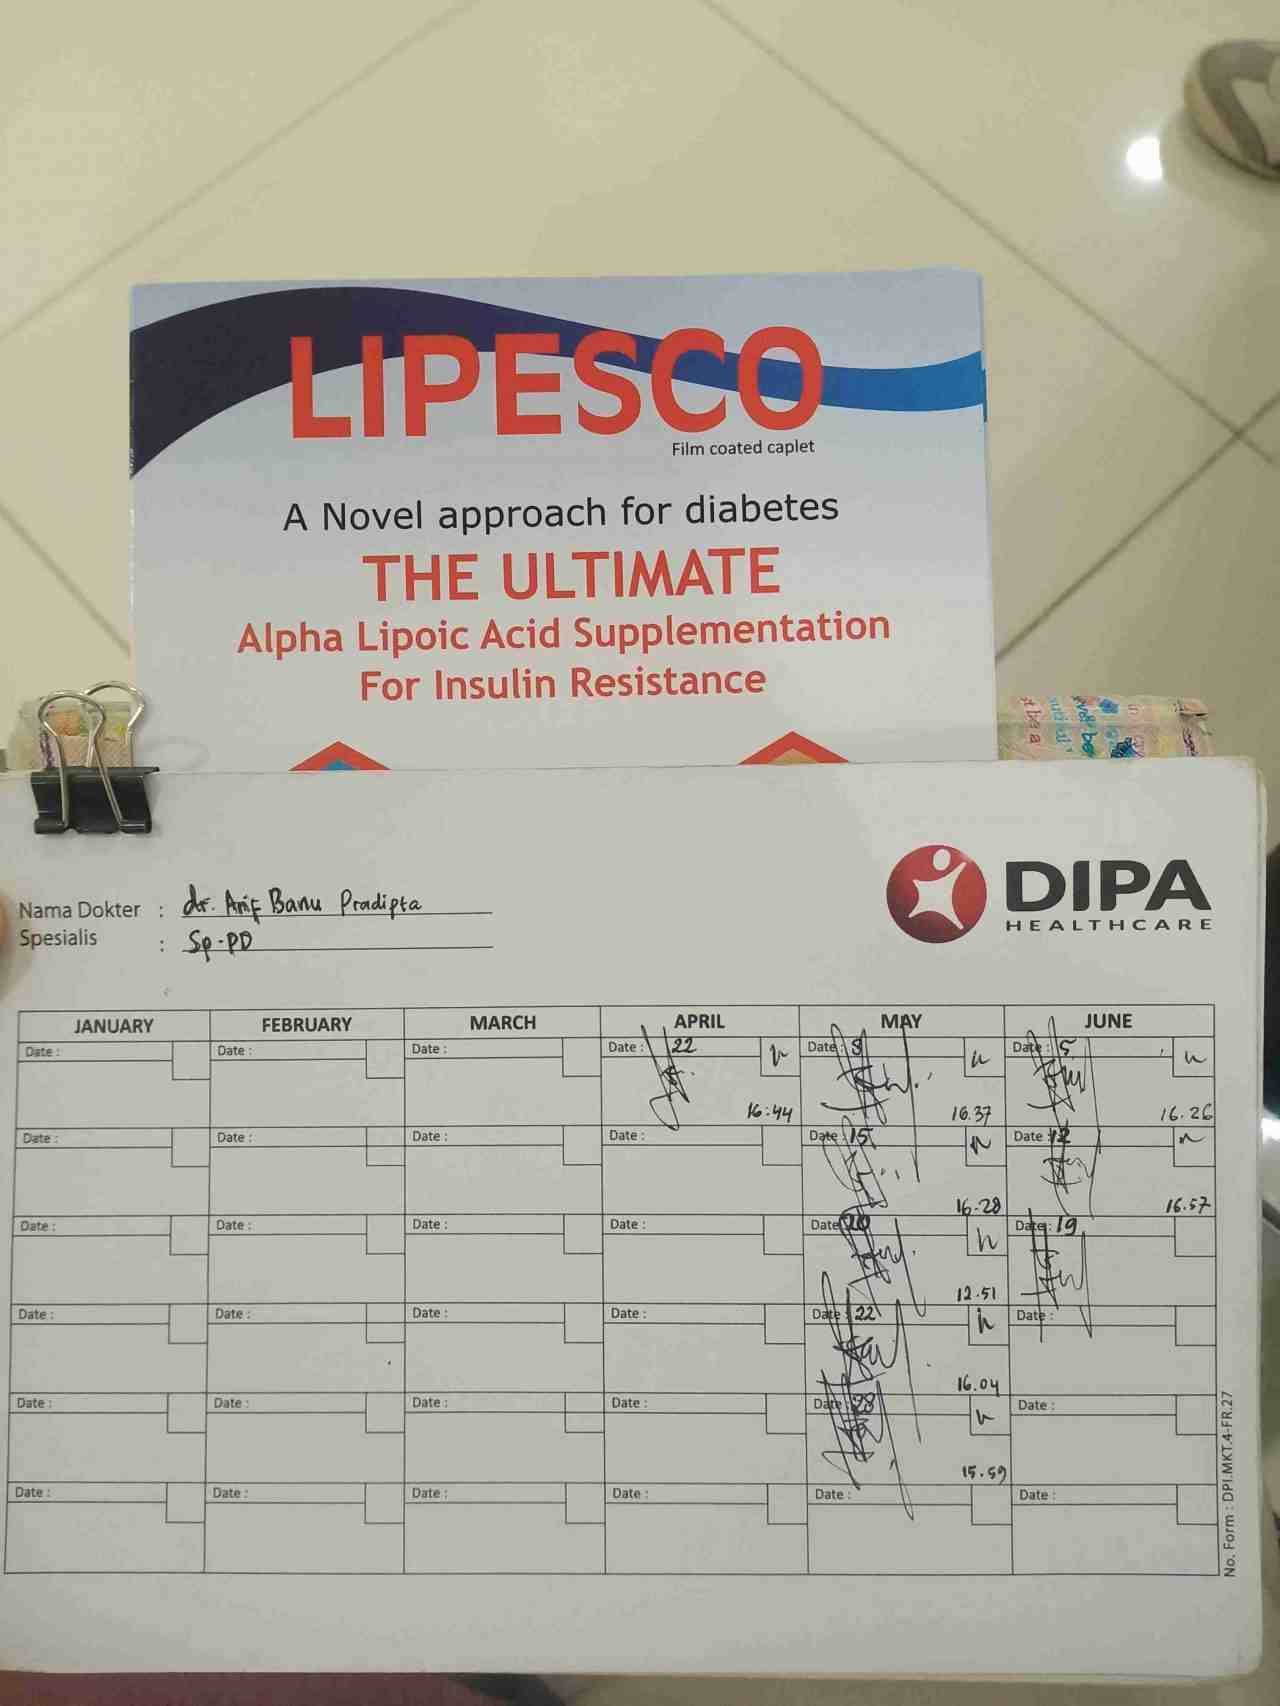 LIPESCO
Film coated caplet
A Novel approach for diabetes
THE ULTIMATE
Alpha Lipoic Acid Supplementation
For Insulin Resistance
DIPA
HEALTHCARE
Nama Dokter : dr. Arif Banu Pradipta
Spesialis : Sp-PD
JANUARY FEBRUARY MARCH APRIL MAY JUNE
Date : Date : Date : Date : 22 Date : 8 Date : 5
16:44 16.37 16.26
Date : Date : Date : Date : Date : 15 Date : 12
16.28 16.57
Date : Date : Date : Date : Date : 20 Date : 19
12.51
Date : Date : Date : Date : Date : 22 Date :
16.04
Date : Date : Date : Date : Date : 28 Date :
15.59
Date : Date : Date : Date : Date : Date :
No. Form : DPI.MKT.4-FR.27